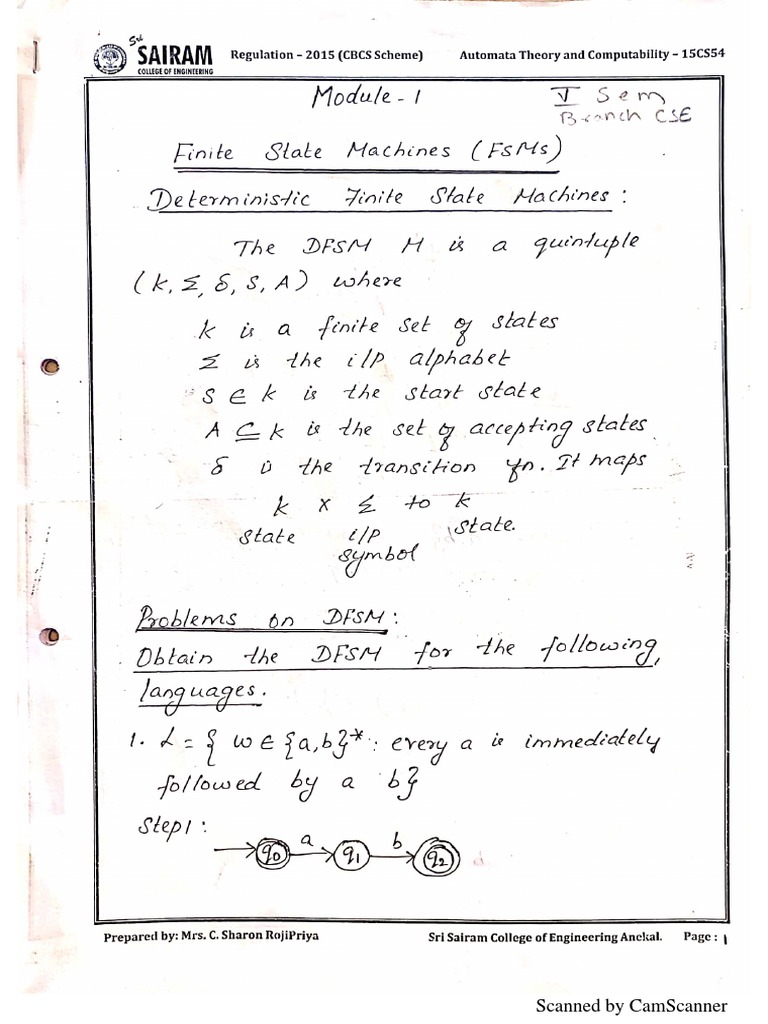 Sri
SAIRAM
COLLEGE OF ENGINEERING
Regulation – 2015 (CBCS Scheme) Automata Theory and Computability – 15CS54
Module - 1
V Sem
Branch CSE
Finite State Machines (FSMs)
Deterministic Finite State Machines :
The DFSM M is a quintuple
(K, Σ, δ, S, A) where
K is a finite set of states
Σ is the i/p alphabet
S ∈ K is the start state
A ⊆ K is the set of accepting states
δ is the transition fn. It maps
K × Σ to K
state i/p state.
symbol
Problems on DFSM :
Obtain the DFSM for the following
languages.
1. L = { w ∈ {a,b}* : every a is immediately
followed by a b}
Step1 :
q0 a q1 b q2
Prepared by: Mrs. C. Sharon RojiPriya Sri Sairam College of Engineering Anekal. Page : 1
Scanned by CamScanner